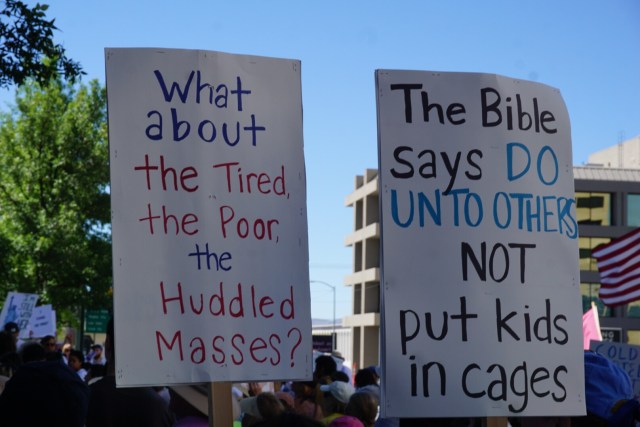 What
about
the Tired,
the Poor,
the
Huddled
Masses?
The Bible
says DO
UNTO OTHERS
NOT
put kids
in cages
COLD